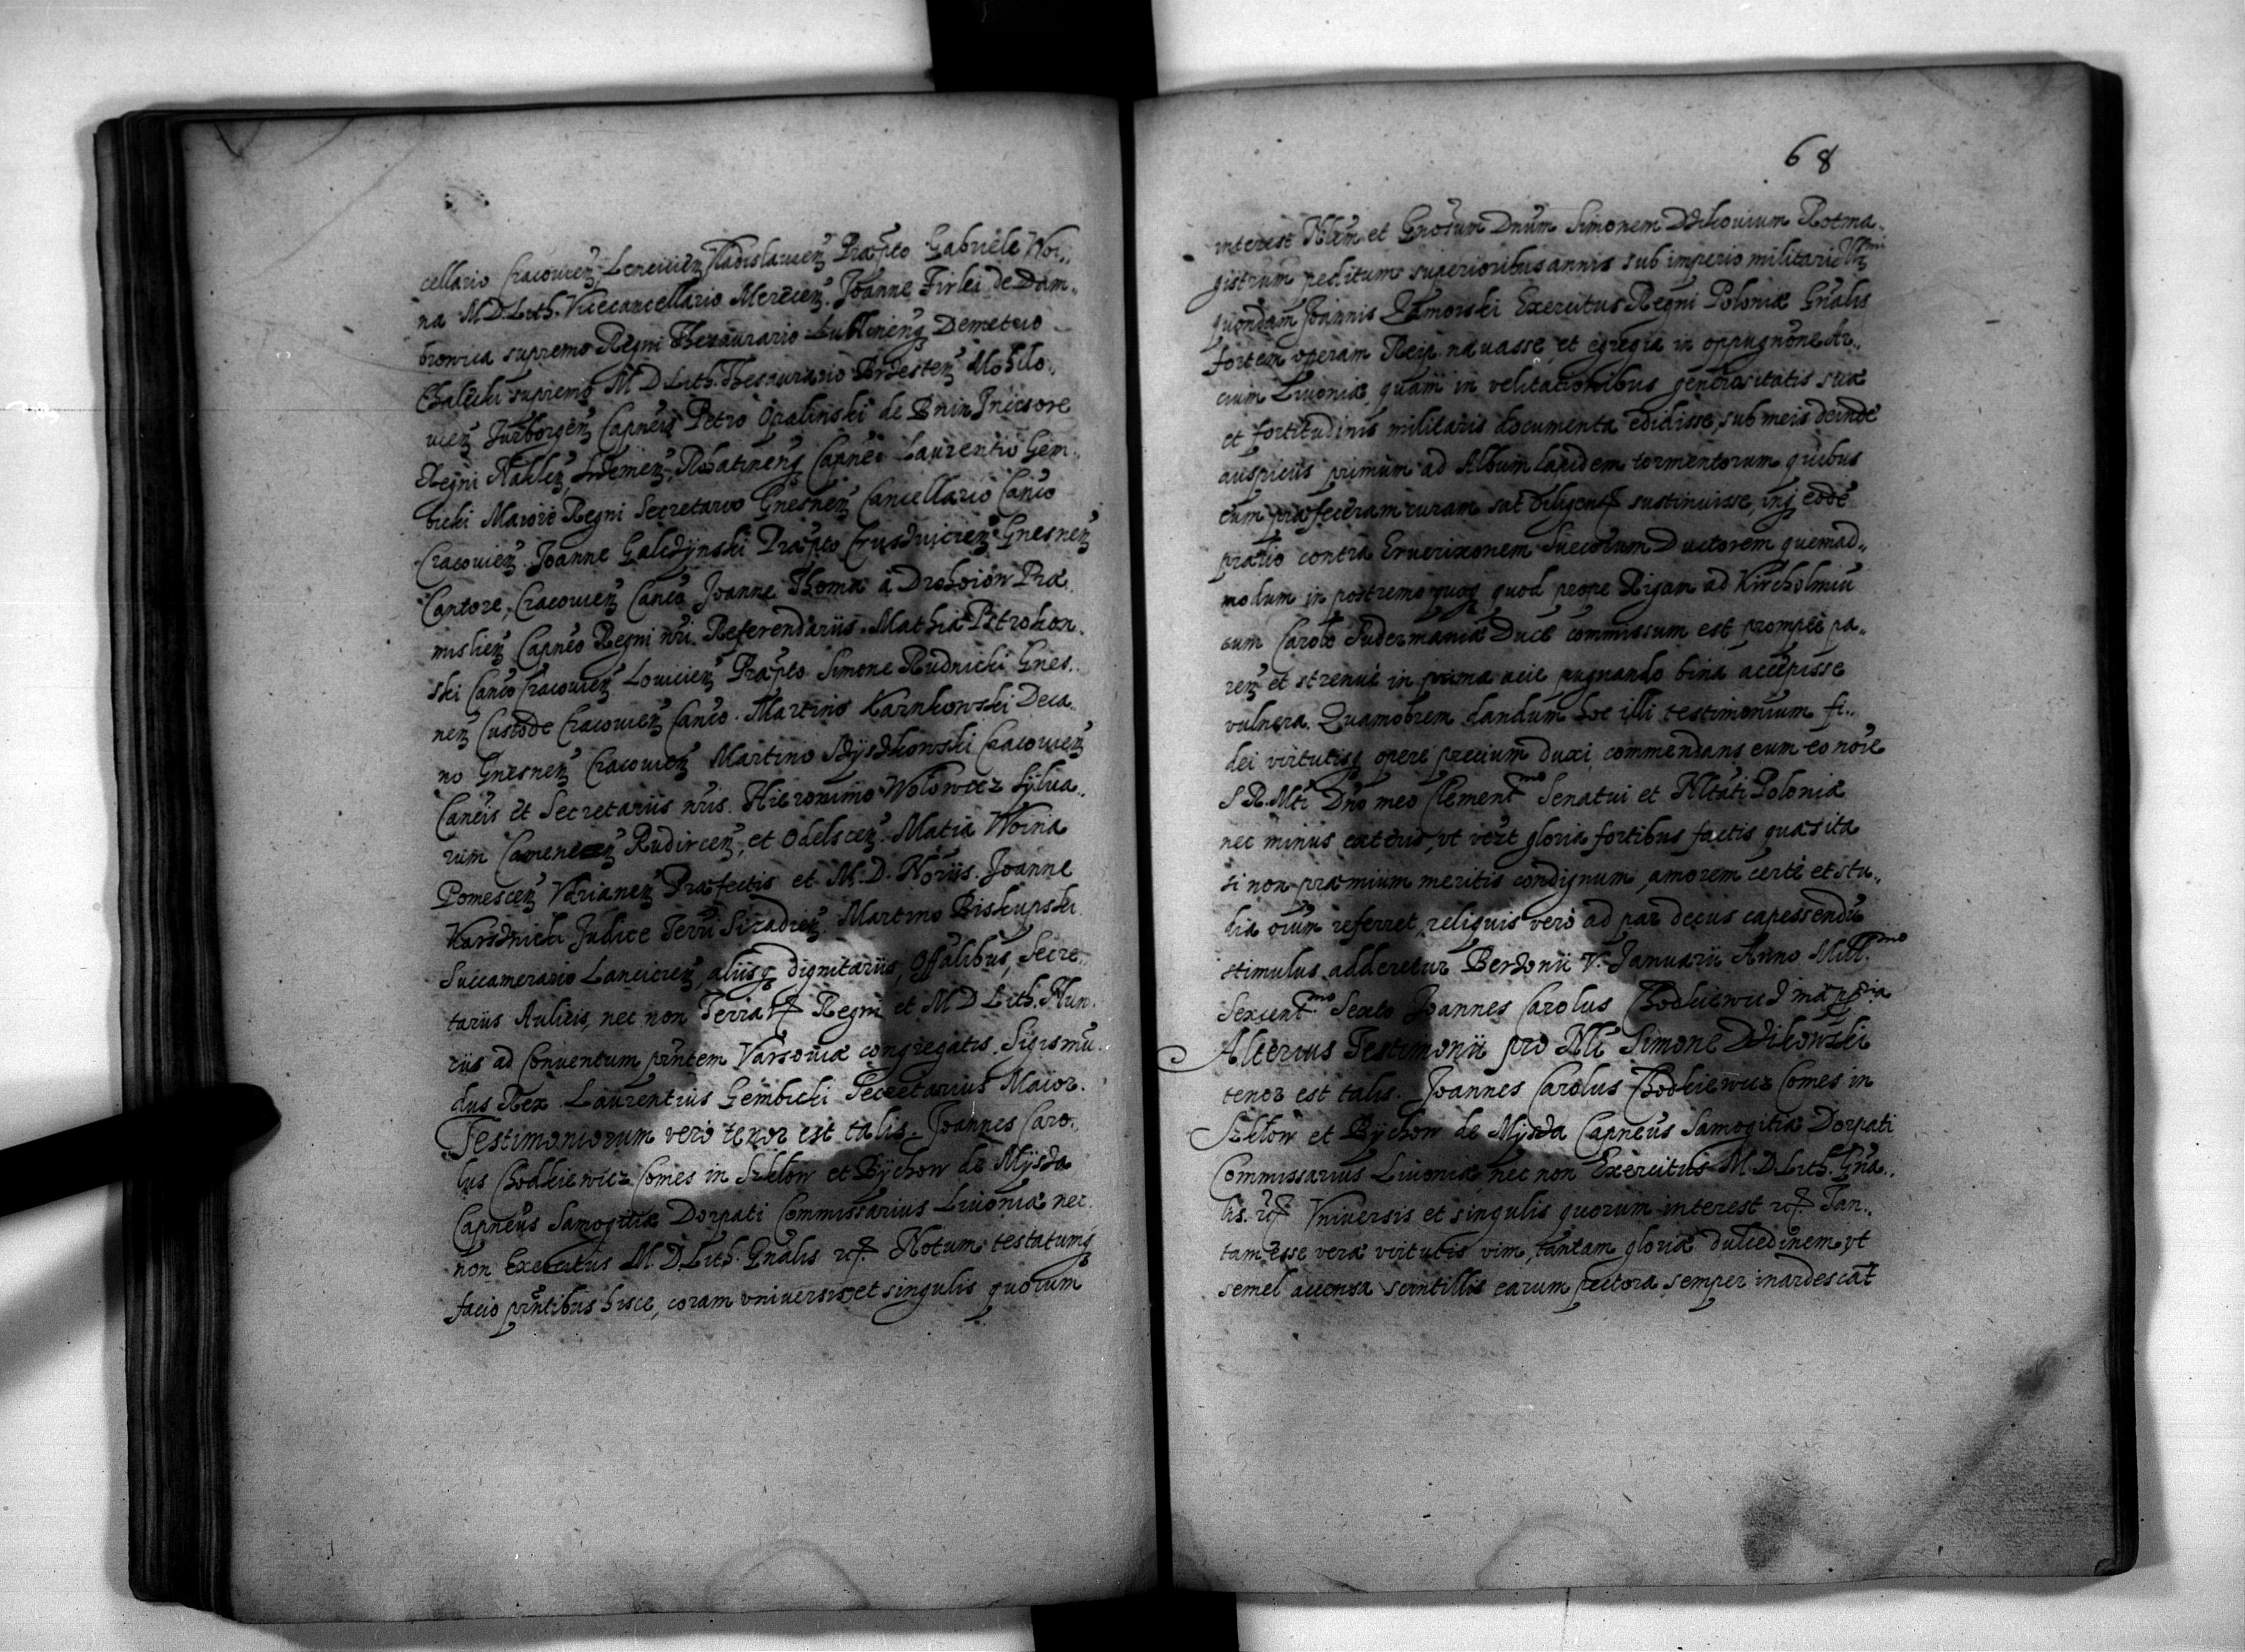 cellario Cracovien, Lenciicien Vladislavien Præpto Gabriele Woi„
na M. D. Lith. Vicecancellario Merecen. Joanne Firlei de Dam„
browica supremo Regni Thezaurario Lublinens Demetrio
Chalecki supremo M D Lith. Thesaurario Brzesten Mohilo„
vien Jurborgen Capneis Petro Opalinski de Bnin Incisore
Regni Naklen, Sremen, Rohatinens Capneo Laurentio Gem„
bicki Maiore Regni Secretario Gnesnen Cancellario Canco
Cracovien. Joanne Galczynski Præpto Crusvicien Gnesnen
Cantore, Cracovien Canco Joanne Thoma à Drohoiow Præ„
mislien Capneo Regni nri Referendariis. Mathia Pstrokon„
ski Canco Cracovien Lovicien Præpto Simone Rudnicki Gnes„
nen Custode Cracovien Canco. Martino Karnkowski Deca„
no Gnesnen Cracovien Martino Szyszkowski Cracovien
Caneis et Secretariis nris. Hieronimo Wolowicz Sylva„
rum Rudincen, et Odelscen. Matia Woina
Pomescen Præfectis et M. D. Noriis. Joanne
Judice Terri Siradien. Martino Biskupski
Succamerario Lancicien, aliisq dignitariis, Offalibus, Secre„
tariis Aulicis, nec non Terrar Regni et M D Lith. Nun„
riis ad Conventum pntem Varsoviæ congregatis. Sigismu„
dus Rex Laurentius Gembicki Secretarius Maior.
Testimoniorum vero tenor est talis. Joannes Caro„
lus Chodkiewicz Comes in Szklow et Bychow de Mysza
Capneus Samogitiæ Dorpati Commissarius Livoniæ nec
non Exercitus M. D. Lith. Gnalis etc. Notum testatumq
facio pntibus hisce, coram universis et singulis quorum
68
interest Nlem et Gnosum Dnum Simonem Rotma„
gistrum peditum superioribus annis sub imperio militari Illmi
quondam Joannis Zamoiski Exercitus Regni Poloniæ Gnalis
fortem operam Reip. navasse, et egregia in oppugnone Ar„
cium Livoniæ, quam in velitationibus generositatis suæ
et fortitudinis militaris documenta edidisse, sub meis deinde
auspiciis primum ad Album lapidem tormentorum quibus
eum præfeceram curam sat diligent sustinuisse, inq eode
prælio contra Suecorum Ductorem quemad„
modum in postremo quoq quod prope Rigam ad Kircholmiu
cum Carolo Sudermaniæ Duce commissum est prompte pa„
ren et strenuè in prima acie pugnando bina accepisse
vulnera. Quamobrem dandum hoc illi testimonium fi„
dei virtutisq operæ precium duxi, commendans eum eo noie
S. R. Mti Dno meo Clementmo Senatui et Nltati Poloniæ
nec minus exteris, ut vert gloria fortibus factis quæsita
si non præmium meritis condignum, amorem certè et stu„
dia oium referret, reliquis verò ad par decus capessendu
stimulus adderetur Bersonii V. Januarii Anno Mill.mo
Sexcentmo Sexto Joannes Carolus Chodkiewicz mã ppria
Alterius Testimonii pro Nli Simone
tenor est talis. Joannes Carolus Chodkiewicz Comes in
Szklow et Bychow de Mysza Capneus Samogitiæ Dorpati
Commissarius Livoniæ, nec non Exercitus M. D. Lith. Gna„
lis. etc. Universis et singulis quorum interest etc. Tan„
tam esse veræ virtutis vim, tantam gloriæ dulcedinem, ut
semel accensa scintillis earum pectora semper inardescat